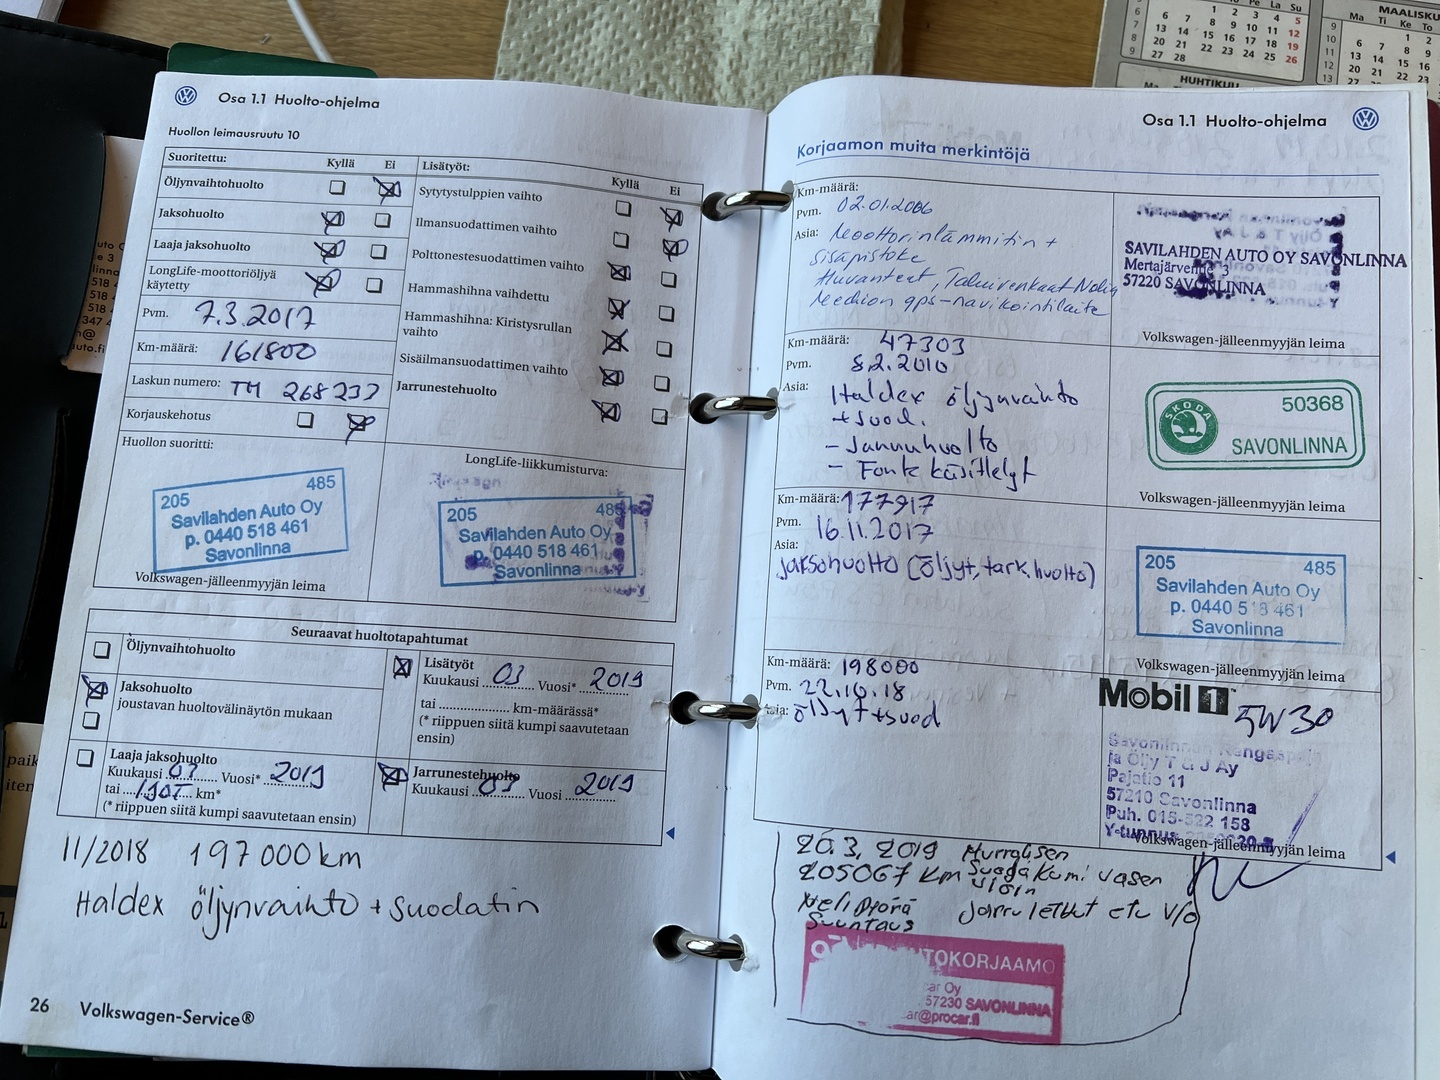 Osa 1.1 Huolto-ohjelma
Huollon leimausruutu 10
Suoritettu: Kyllä Ei
Öljynvaihtohuolto
Jaksohuolto
Laaja jaksohuolto
LongLife-moottoriöljyä
käytetty
Pvm. 7.3.2017
Km-määrä: 161800
Laskun numero: TM 268233
Korjauskehotus
Huollon suoritti:
205 485
Savilahden Auto Oy
p. 0440 518 461
Savonlinna
Volkswagen-jälleenmyyjän leima
Lisätyöt: Kyllä Ei
Sytytystulppien vaihto
Ilmansuodattimen vaihto
Polttonestesuodattimen vaihto
Hammashihna vaihdettu
Hammashihna: Kiristysrullan
vaihto
Sisäilmansuodattimen vaihto
Jarrunestehuolto
LongLife-liikkumisturva:
205 485
Savilahden Auto Oy
p. 0440 518 461
Savonlinna
Seuraavat huoltotapahtumat
Öljynvaihtohuolto
Jaksohuolto
joustavan huoltovälinäytön mukaan
Laaja jaksohuolto
Kuukausi 07 Vuosi* 2019
tai 190T km*
(* riippuen siitä kumpi saavutetaan ensin)
Lisätyöt
Kuukausi 03 Vuosi* 2019
tai km-määrässä*
(* riippuen siitä kumpi saavutetaan
ensin)
Jarrunestehuolto
Kuukausi 03 Vuosi 2019
11/2018 197 000 km
Haldex öljynvaihto + suodatin
26 Volkswagen-Service®
Osa 1.1 Huolto-ohjelma
Korjaamon muita merkintöjä
Km-määrä:
Pvm. 02.01.2006
Asia: Moottorinlämmitin +
sisäpistoke
Huvanteet, Talvirenkaat Nokia
Medion gps-navikointilaite
SAVILAHDEN AUTO OY SAVONLINNA
Mertajärventie 3
57220 SAVONLINNA
Volkswagen-jälleenmyyjän leima
Km-määrä: 47303
Pvm. 8.2.2010
Asia: Haldex öljynvaihto
+ suod.
- Jarruhuolto
- Fonte käsittelyt
SKODA
50368
SAVONLINNA
Volkswagen-jälleenmyyjän leima
Km-määrä: 177917
Pvm. 16.11.2017
Asia:
jaksohuolto (öljyt, tark.huolto)
205 485
Savilahden Auto Oy
p. 0440 518 461
Savonlinna
Volkswagen-jälleenmyyjän leima
Km-määrä: 198000
Pvm. 22.10.18
Asia: öljyt+suod
Mobil 1 5W30
Savonlinnan Rengaspaja
ja Öljy T & J Ay
Pajatie 11
57210 Savonlinna
Puh. 015-522 158
Y-tunnus
Volkswagen-jälleenmyyjän leima
20.3.2019
205067 km Suojakumi vasen
Nelipyörä Jarruletkut etu v/o
Suuntaus
TOKORJAAMO
ar Oy
57230 SAVONLINNA
ar@procar.fi
MAALISKU
HUHTIKUU